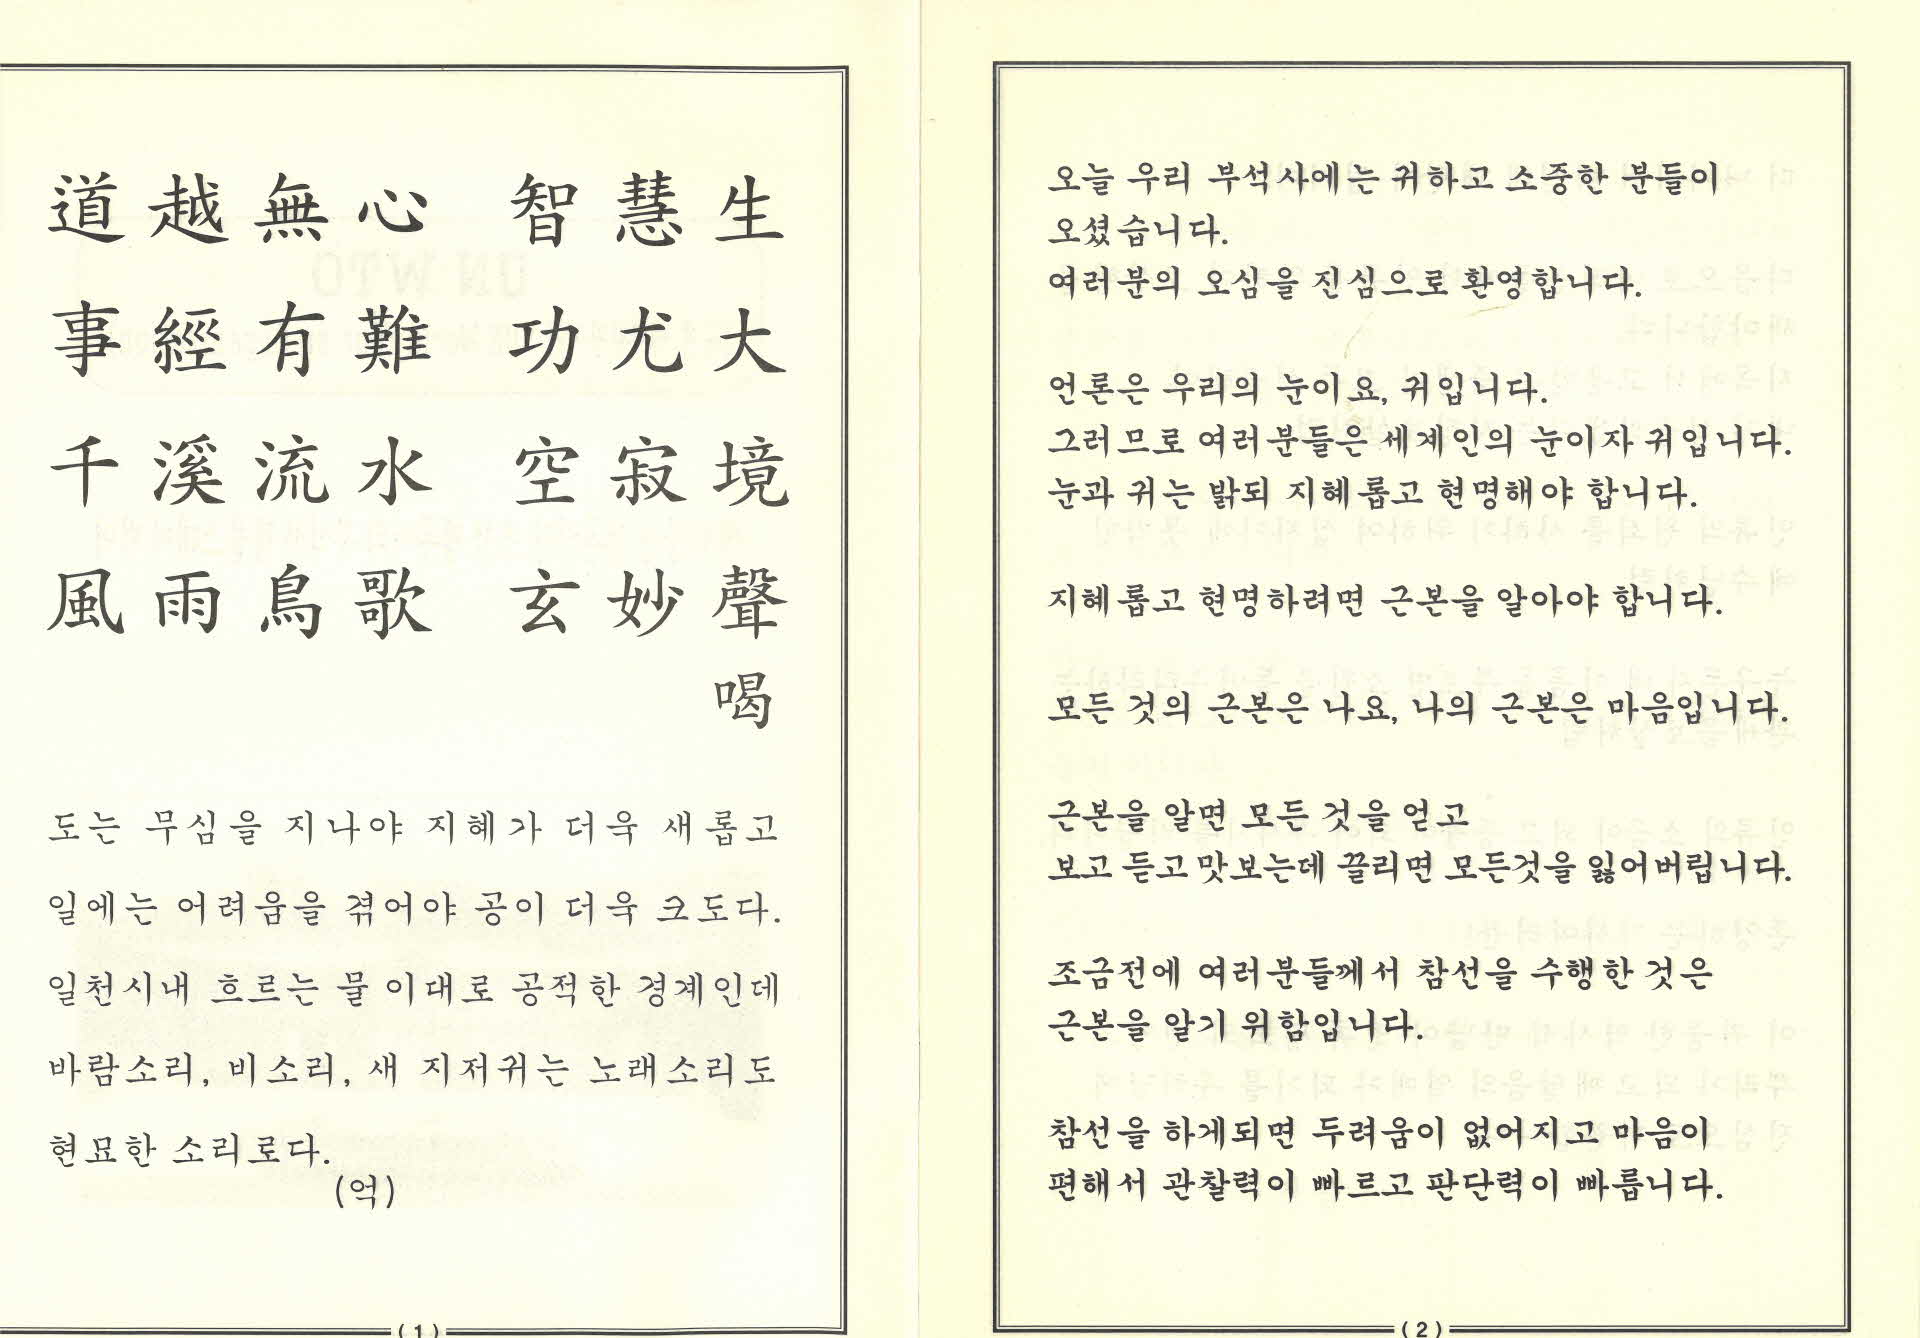 道越無心 智慧生
事經有難 功尤大
千溪流水 空寂境
風雨鳥歌 玄妙聲
喝
도는 무심을 지나야 지혜가 더욱 새롭고
일에는 어려움을 겪어야 공이 더욱 크도다.
일천시내 흐르는 물 이대로 공적한 경계인데
바람소리, 비소리, 새 지저귀는 노래소리도
현묘한 소리로다.
(억)
(1)
오늘 우리 부석사에는 귀하고 소중한 분들이
오셨습니다.
여러분의 오심을 진심으로 환영합니다.
언론은 우리의 눈이요, 귀입니다.
그러므로 여러분들은 세계인의 눈이자 귀입니다.
눈과 귀는 밝되 지혜롭고 현명해야 합니다.
지혜롭고 현명하려면 근본을 알아야 합니다.
모든 것의 근본은 나요, 나의 근본은 마음입니다.
근본을 알면 모든 것을 얻고
보고 듣고 맛보는데 끌리면 모든것을 잃어버립니다.
조금전에 여러분들께서 참선을 수행한 것은
근본을 알기 위함입니다.
참선을 하게되면 두려움이 없어지고 마음이
편해서 관찰력이 빠르고 판단력이 빠릅니다.
(2)